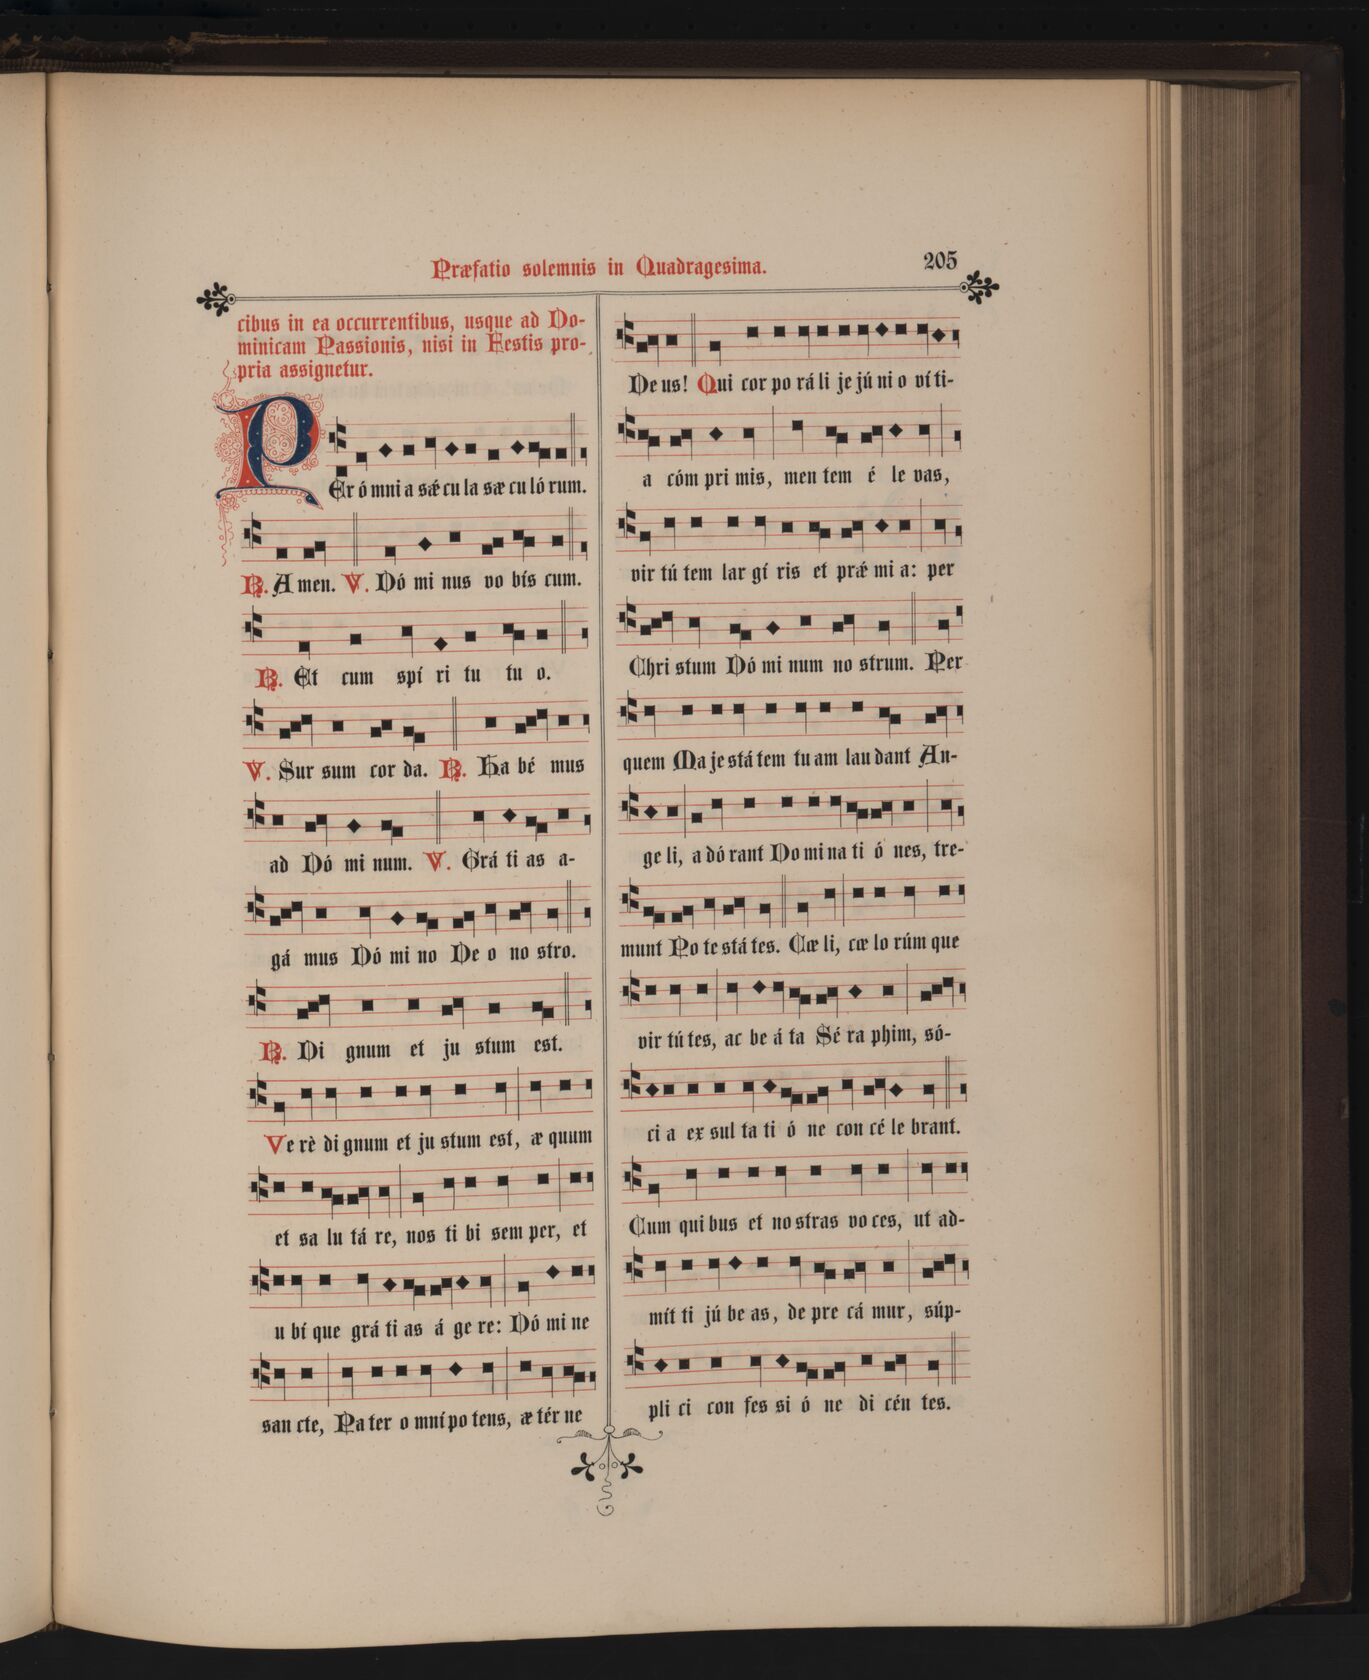 Præfatio solemnis in Quadragesima.
205
cibus in ea occurrentibus, usque ad Do-
minicam Passionis, nisi in Festis pro-
pria assignetur.
PEr ó mni a sǽ cu la sæ cu ló rum.
℟. A men. ℣. Dó mi nus vo bís cum.
℟. Et cum spí ri tu tu o.
℣. Sur sum cor da. ℟. Ha bé mus
ad Dó mi num. ℣. Grá ti as a-
gá mus Dó mi no De o no stro.
℟. Di gnum et ju stum est.
Ve rè di gnum et ju stum est, æ quum
et sa lu tá re, nos ti bi sem per, et
u bí que grá ti as á ge re: Dó mi ne
san cte, Pa ter o mní po tens, æ tér ne
De us! Qui cor po rá li je jú ni o ví ti-
a cóm pri mis, men tem é le vas,
vir tú tem lar gí ris et prǽ mi a: per
Chri stum Dó mi num no strum. Per
quem Ma je stá tem tu am lau dant An-
ge li, a dó rant Do mi na ti ó nes, tre-
munt Po te stá tes. Cœ li, cœ lo rúm que
vir tú tes, ac be á ta Sé ra phim, só-
ci a ex sul ta ti ó ne con cé le brant.
Cum qui bus et no stras vo ces, ut ad-
mít ti jú be as, de pre cá mur, súp-
pli ci con fes si ó ne di cén tes.